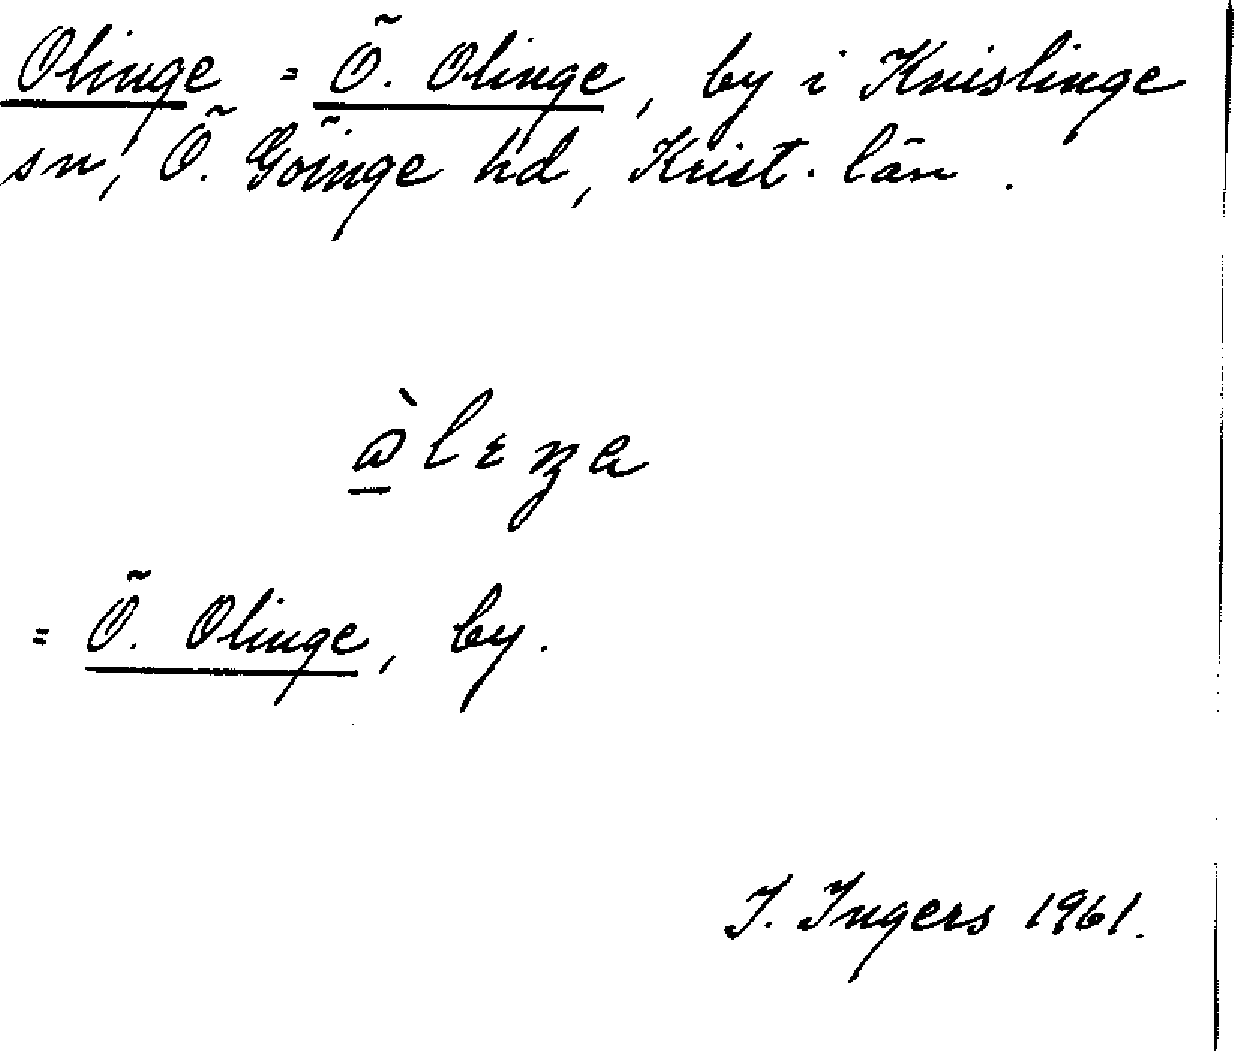 Olinge = Ö. Olinge, by i Knislinge
sn, Ö. Göinge hd, Krist. län.
= Ö. Olinge, by.
I. Ingers 1961.